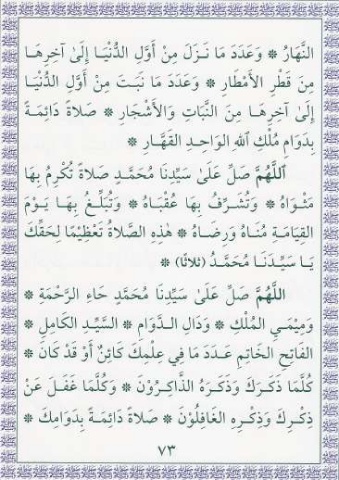 النَّهَارُ * وَعَدَدَ مَا نَزَلَ مِنْ أَوَّلِ الدُّنْيَا إِلَىٰ آخِرِهَا
مِنْ قَطْرِ الأَمْطَارِ * وَعَدَدَ مَا نَبَتَ مِنْ أَوَّلِ الدُّنْيَا
إِلَىٰ آخِرِهَا مِنَ النَّبَاتِ وَالأَشْجَارِ * صَلاَةً دَائِمَةً
بِدَوَامِ مُلْكِ اللهِ الوَاحِدِ القَهَّارِ *
اَللَّهُمَّ صَلِّ عَلَىٰ سَيِّدِنَا مُحَمَّدٍ صَلاَةً تُكْرِمُ بِهَا
مَثْوَاهُ * وَتُشَرِّفُ بِهَا عُقْبَاهُ * وَتُبَلِّغُ بِهَا يَوْمَ
القِيَامَةِ مُنَاهُ وَرِضَاهُ * هٰذِهِ الصَّلاَةُ تَعْظِيْمًا لِحَقِّكَ
يَا سَيِّدَنَا مُحَمَّدُ (ثلاثًا) *
اَللَّهُمَّ صَلِّ عَلَىٰ سَيِّدِنَا مُحَمَّدٍ حَاءِ الرَّحْمَةِ *
وَمِيْمَيِ المُلْكِ * وَدَالِ الدَّوَامِ * السَّيِّدِ الكَامِلِ *
الفَاتِحِ الخَاتِمِ عَدَدَ مَا فِي عِلْمِكَ كَائِنٌ أَوْ قَدْ كَانَ *
كُلَّمَا ذَكَرَكَ وَذَكَرَهُ الذَّاكِرُوْنَ * وَكُلَّمَا غَفَلَ عَنْ
ذِكْرِكَ وَذِكْرِهِ الغَافِلُوْنَ * صَلاَةً دَائِمَةً بِدَوَامِكَ *
٧٣